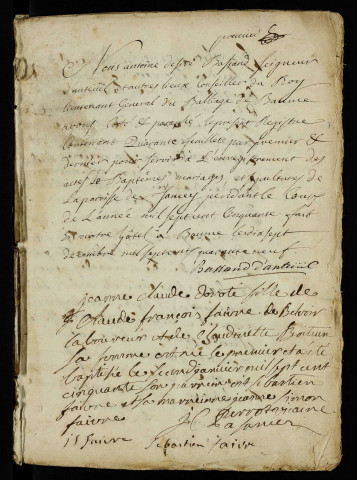 premier
Nous antoine desiré Bassand Seigneur
d'autres lieux Conseiller du Roy
lieutenant General du Bailliage de Baume
avons Coté et paraphé le present Registre
Contenant Quarante feuillets par premier &
dernier pour servir à L'enregistrement des
actes de Baptêmes mariages et sepultures de
La paroisse de pendant le Cours
de L'année mil sept cent Cinquante fait
en notre hôtel à Baume le dix sept
decembre mil sept cent quarante neuf
Bassand d'anteüil
jeanne Claude fille de
Claude françois faivre de
laboureur et de Claudinette
sa femme est née le premier et a été
baptisée le second janvier mil sept cent
cinquante son parrein est sebastien
faivre et sa marreinne jeanne simon
faivre
JS faivre sebastien faivre